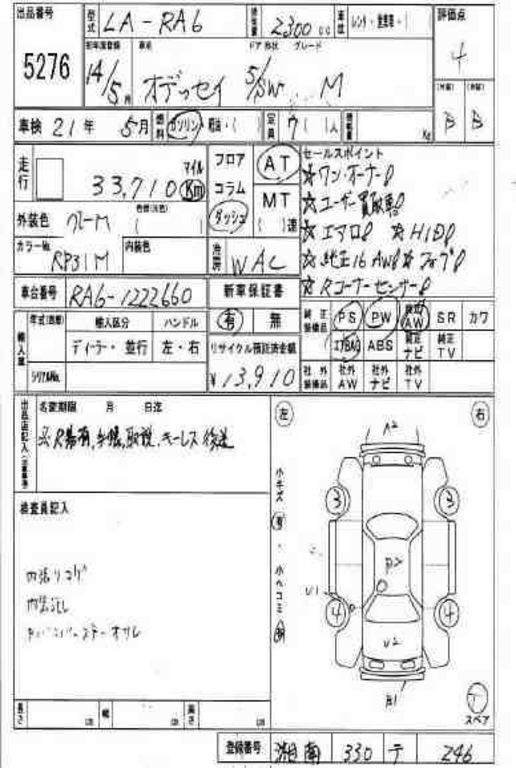 出品番号 5276
型式 LA-RA6 排気量 2300 cc 車歴 レンタ・営業車・( )
初年度登録 車名 ドア 形状 グレード
14/5月 オデッセイ 5/SW M
評価点 4
(外装) (内装)
B B
車検 21年 5月 燃料 ガソリン 軽油・( ) 定員 7( )人 積載量 Kg
走行 33,710 マイル Km
外装色 クレーM 色替(元色) ( )
カラーNo. RP31M 内装色
フロア コラム ダッシュ
AT MT ( )速
冷房 WAC
セールスポイント
☆ワンオーナー!
☆ユーザー買取車!
☆エアロ! ☆HID!
☆純正16AW! ☆フォグ!
☆Rコーナーセンサー!
車台番号 RA6-1222660 新車保証書
有 無
純正装備品 PS PW 純正AW SR カワ
エアBAG ABS 純正ナビ 純正TV
社外装備品 社外AW 社外ナビ 社外TV
輸入車 年式(自動) 輸入区分 ハンドル
ディーラー・並行 左・右
シリアルNo.
リサイクル預託済金額
¥13,910
出品店記入(注意事項) 名変期限 月 日迄
手帳,取説,キーレス後送
検査員記入
内張りコゲ
小キズ 有・小ヘコミ
左 右
A2
3 3
P2
U1
4 4
U2
B1
スペア
長さ cm 幅 cm 高さ cm
登録番号 湘南 330 テ 246